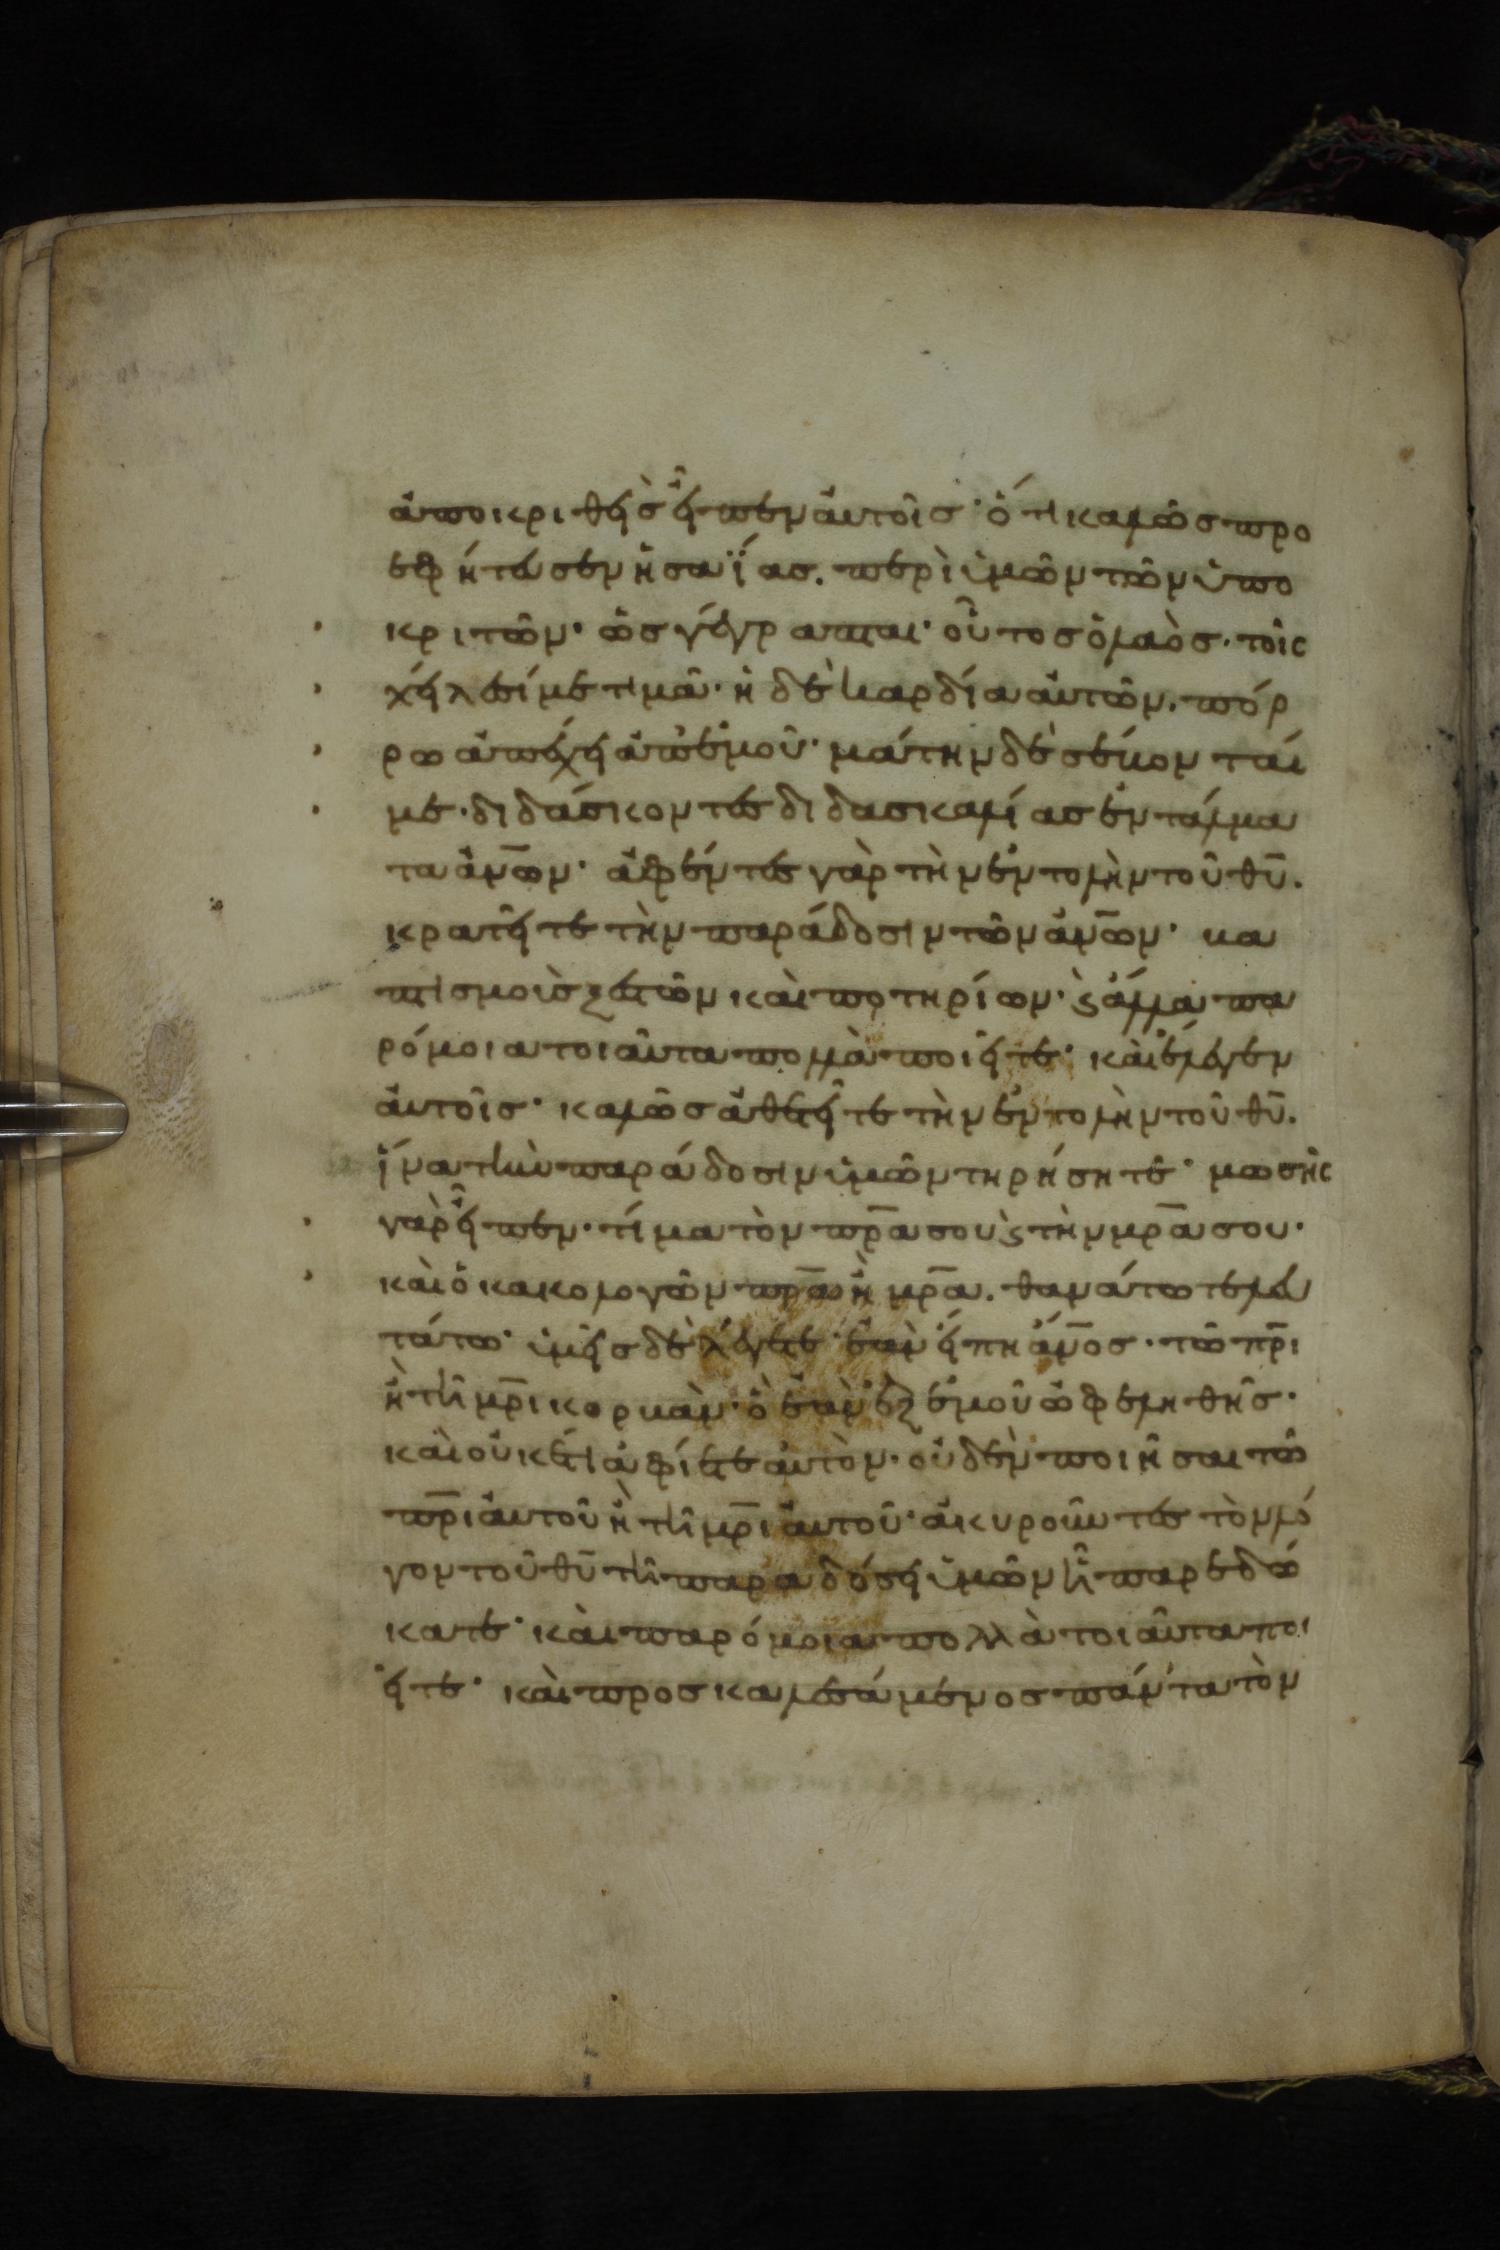 ἀποκριθεὶς εἶπεν αὐτοῖσ· ὅτι καλῶσ προ
εφήτευσεν ἡσαΐασ. περὶ ὑμῶν τῶν ὑπο
κριτῶν· ὡσ γέγραπται· οὗτοσ ὁ λαὸσ. τοῖς
χείλεσί με τιμᾶ· ἡ δὲ καρδία αὐτῶν. πόρ
ρω ἀπέχει ἀπ' ἐμοῦ· μάτην δὲ σέβονταί
με· διδάσκοντες διδασκαλίασ ἐντάλμα
τα ἀν̅ων· ἀφέντες γὰρ τὴν ἐντολὴν τοῦ θυ̅.
κρατεῖτε τὴν παράδοσιν τῶν ἀν̅ων· βα
πτισμοὺσ ξεστῶν καὶ ποτηρίων· ϛ ἄλλα πα
ρόμοια τοιαῦτα πολλὰ ποιεῖτε· καὶ ἔλεγεν
αὐτοῖσ· καλῶσ ἀθετεῖτε τὴν ἐντολὴν τοῦ θυ̅.
ἵνα τὴν παράδοσιν ὑμῶν τηρήσητε· μωσῆς
γὰρ εἶπεν· τίμα τὸν πρ̅α σου ϛ τὴν μρ̅α σου·
καὶ ὁ κακολογῶν πρ̅α ἢ μρ̅α. θανάτω τελευ
τάτω· ὑμεῖσ δὲ λέγετε· ἐὰν εἴπη ἄν̅οσ· τῶ πρ̅ι
ἢ τῆ μρ̅ι κορβὰν· ὃ ἐὰν ἐξ ἐμοῦ ὠφεληθῆσ·
καὶ οὐκέτι ἀφίετε αὐτὸν· οὐδὲν ποιῆσαι τῶ
πρ̅ι αὐτοῦ ἢ τῆ μρ̅ι αὐτοῦ· ἀκυροῦντες τὸν λό
γον τοῦ θυ̅ τῆ παραδόσει ὑμῶν ἧ παρεδώ
κατε· καὶ παρόμοια πολλὰ τοιαῦτα ποι
εῖτε· καὶ προσκαλεσάμενοσ πάντα τὸν